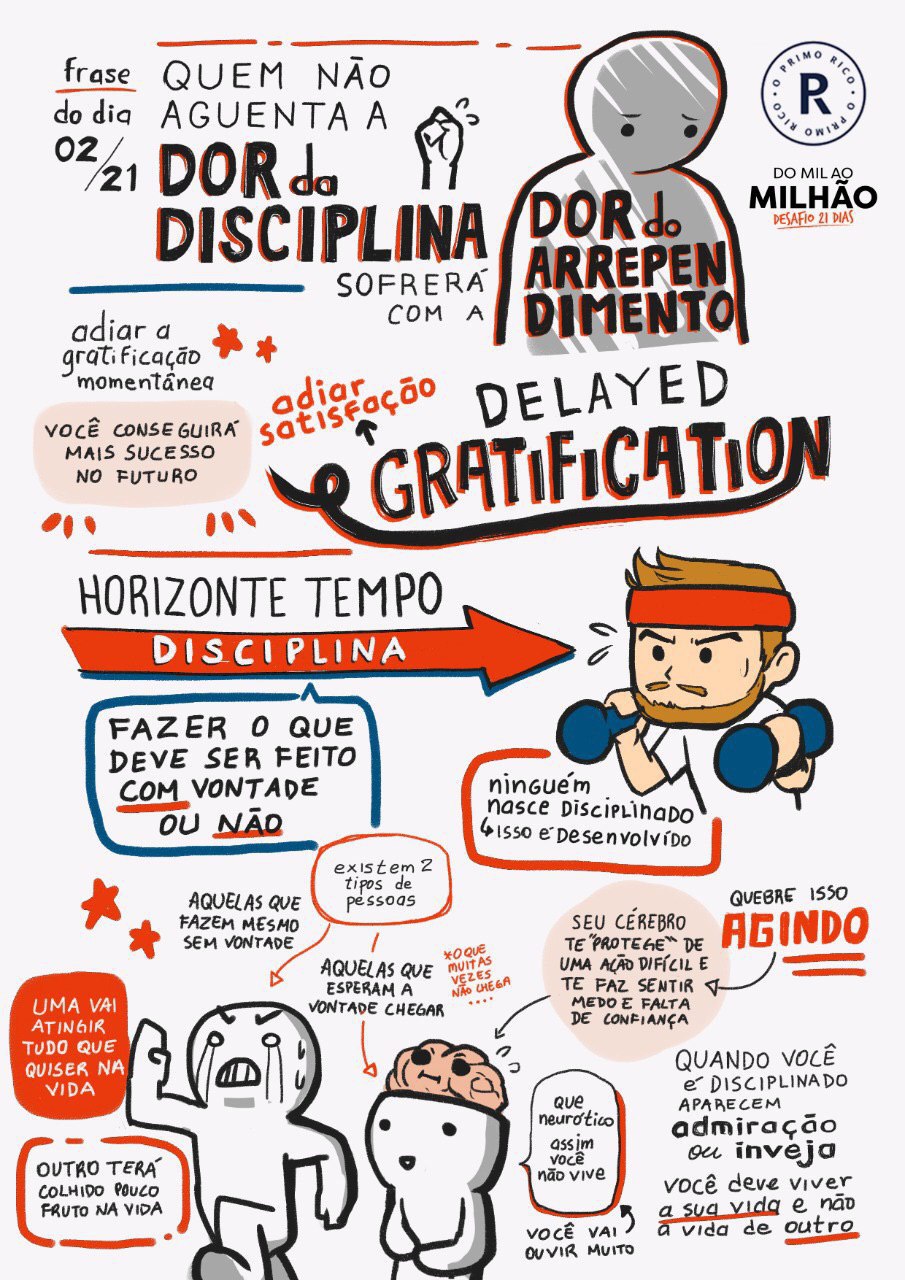 frase
do dia
02/21
QUEM NÃO
AGUENTA A
DOR da
DISCIPLINA
SOFRERÁ
COM A
DOR do
ARREPEN
DIMENTO
O PRIMO RICO • O PRIMO RICO •
R
DO MIL AO
MILHÃO
DESAFIO 21 DIAS
adiar a
gratificação
momentânea
VOCÊ CONSEGUIRÁ
MAIS SUCESSO
NO FUTURO
adiar
satisfação
DELAYED
GRATIFICATION
HORIZONTE TEMPO
DISCIPLINA
FAZER O QUE
DEVE SER FEITO
COM VONTADE
OU NÃO
ninguém
nasce DISCIPLINADO
↳ISSO É DESENVOLVIDO
existem 2
tipos de
pessoas
AQUELAS QUE
FAZEM MESMO
SEM VONTADE
AQUELAS QUE
ESPERAM A
VONTADE CHEGAR
*O QUE
MUITAS
VEZES
NÃO CHEGA
....
SEU CÉREBRO
TE "PROTEGE" DE
UMA AÇÃO DIFÍCIL E
TE FAZ SENTIR
MEDO E FALTA
DE CONFIANÇA
QUEBRE ISSO
AGINDO
UMA VAI
ATINGIR
TUDO QUE
QUISER NA
VIDA
OUTRO TERÁ
COLHIDO POUCO
FRUTO NA VIDA
que
neurótico
assim
você
não vive
VOCÊ VAI
OUVIR MUITO
QUANDO VOCÊ
É DISCIPLINADO
APARECEM
admiração
ou inveja
você deve viver
a sua vida e não
a vida de outro